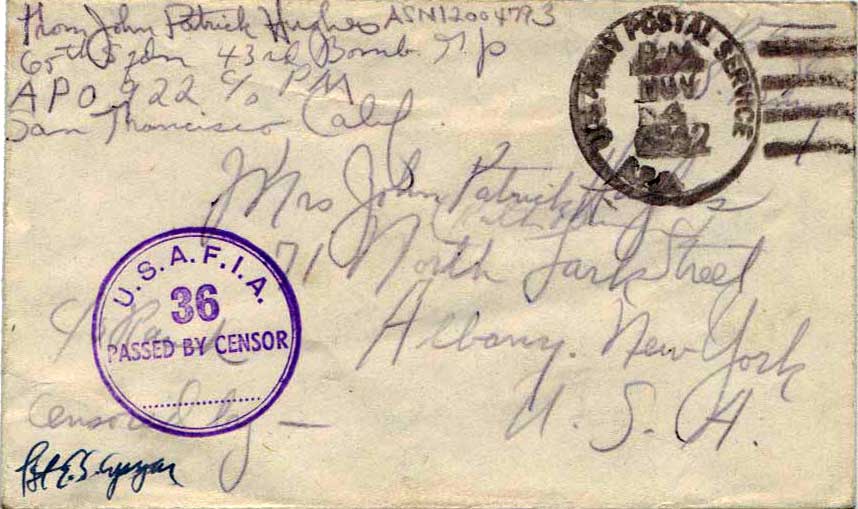 From John Patrick Hughes ASN12004793
65th Sqdn 43rd Bomb. Gp
APO 922 c/o PM
San Francisco Calif
U.S. ARMY POSTAL SERVICE
P.M
NOV
1942
A.P.O.
Mrs John Patrick Hughes
71 North Lark Street
Albany. New York
U. S. A.
U.S.A.F.I.A.
36
PASSED BY CENSOR
Censored by —